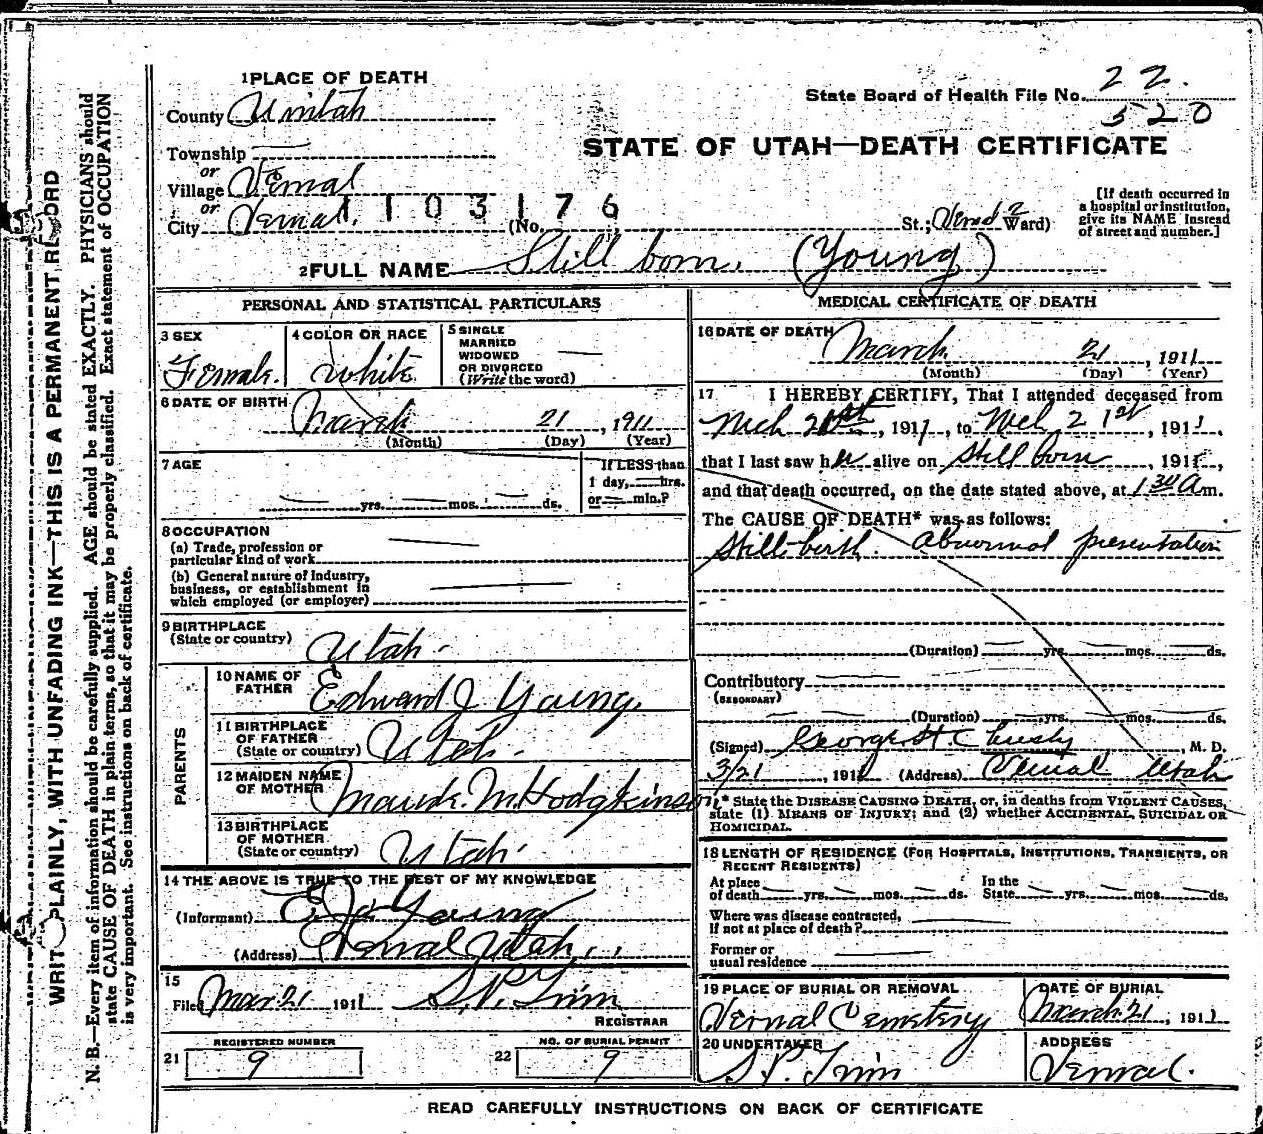 1 PLACE OF DEATH
County Uintah
State Board of Health File No. 22.
520
STATE OF UTAH—DEATH CERTIFICATE
Township
or
Village Vernal
or
City Vernal. 1103176 (No. St.; Vernal 2 Ward)
[If death occurred in
a hospital or institution,
give its NAME instead
of street and number.]
2 FULL NAME Still born. (Young)
PERSONAL AND STATISTICAL PARTICULARS
3 SEX
Female.
4 COLOR OR RACE
White
5 SINGLE
MARRIED
WIDOWED
OR DIVORCED
(Write the word)
6 DATE OF BIRTH
March 21, 1911
(Month) (Day) (Year)
7 AGE
yrs. mos. ds.
If LESS than
1 day, hrs.
or min.?
8 OCCUPATION
(a) Trade, profession or
particular kind of work
(b) General nature of industry,
business, or establishment in
which employed (or employer)
9 BIRTHPLACE
(State or country) Utah.
PARENTS
10 NAME OF
FATHER Edward J Young.
11 BIRTHPLACE
OF FATHER
(State or country) Utah.
12 MAIDEN NAME
OF MOTHER Maude. M. Hodgkinson
13 BIRTHPLACE
OF MOTHER
(State or country) Utah.
14 THE ABOVE IS TRUE TO THE BEST OF MY KNOWLEDGE
(Informant) E. J. Young
(Address) Vernal Utah
15
Filed Mar 21 1911 S. P. Trim
REGISTRAR
21 REGISTERED NUMBER
9
22 NO. OF BURIAL PERMIT
9
MEDICAL CERTIFICATE OF DEATH
16 DATE OF DEATH
March 21, 1911
(Month) (Day) (Year)
17 I HEREBY CERTIFY, That I attended deceased from
Mch 21st, 1911, to Mch 21st, 1911,
that I last saw her alive on Still born, 1911,
and that death occurred, on the date stated above, at 1 30 A m.
The CAUSE OF DEATH* was as follows:
Still-birth. Abnormal presentation
(Duration) yrs. mos. ds.
Contributory
(SECONDARY)
(Duration) yrs. mos. ds.
(Signed) George H. Christy, M. D.
3/21, 1911 (Address) Vernal Utah
* State the DISEASE CAUSING DEATH, or, in deaths from VIOLENT CAUSES,
state (1) MEANS OF INJURY; and (2) whether ACCIDENTAL, SUICIDAL OR
HOMICIDAL.
18 LENGTH OF RESIDENCE (FOR HOSPITALS, INSTITUTIONS, TRANSIENTS, OR
RECENT RESIDENTS)
At place
of death yrs. mos. ds.
In the
State yrs. mos. ds.
Where was disease contracted,
If not at place of death?
Former or
usual residence
19 PLACE OF BURIAL OR REMOVAL
Vernal Cemetery
DATE OF BURIAL
March 21, 1911
20 UNDERTAKER
S. P. Trim
ADDRESS
Vernal.
READ CAREFULLY INSTRUCTIONS ON BACK OF CERTIFICATE
WRITE PLAINLY, WITH UNFADING INK—THIS IS A PERMANENT RECORD
N. B.—Every item of information should be carefully supplied. AGE should be stated EXACTLY. PHYSICIANS should
state CAUSE OF DEATH in plain terms, so that it may be properly classified. Exact statement of OCCUPATION
is very important. See instructions on back of certificate.